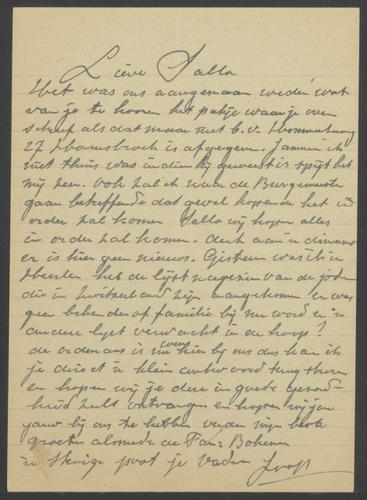 Lieve Salla
Het was ons aangenaam weder wat
van je te hooren het pakje waar je over
schreef als dat maar niet b.v. Hommertweg
27 Hoensbroek is afgegeven. Jammer ik
niet thuis was indien hij geweest is spijt het
mij zeer. Ook zal ik naar de Burgemeester
gaan betreffende dat geval hopende het in
order zal komen Salla wij hopen alles
in order zal komen. denk aan
er is hier geen nieuws. Gisteren was ik in
Heerlen heb de lijst nagezien van de joden
die in Zwitserland zijn aangekomen er was
geen bekenden of familie bij nu word er 'n
andere lijst verwacht in de hoop!
de ordonans is weer hier bij ons dus kan ik
je direct 'n klein antwoord terug sturen
en hopen wij je deze in goede gezond-
heid zult ontvangen en hopen wij jou
gauw bij ons te hebben verder mijn beste
groeten alsmede de Fam:
'n stevige poot je vader Joop